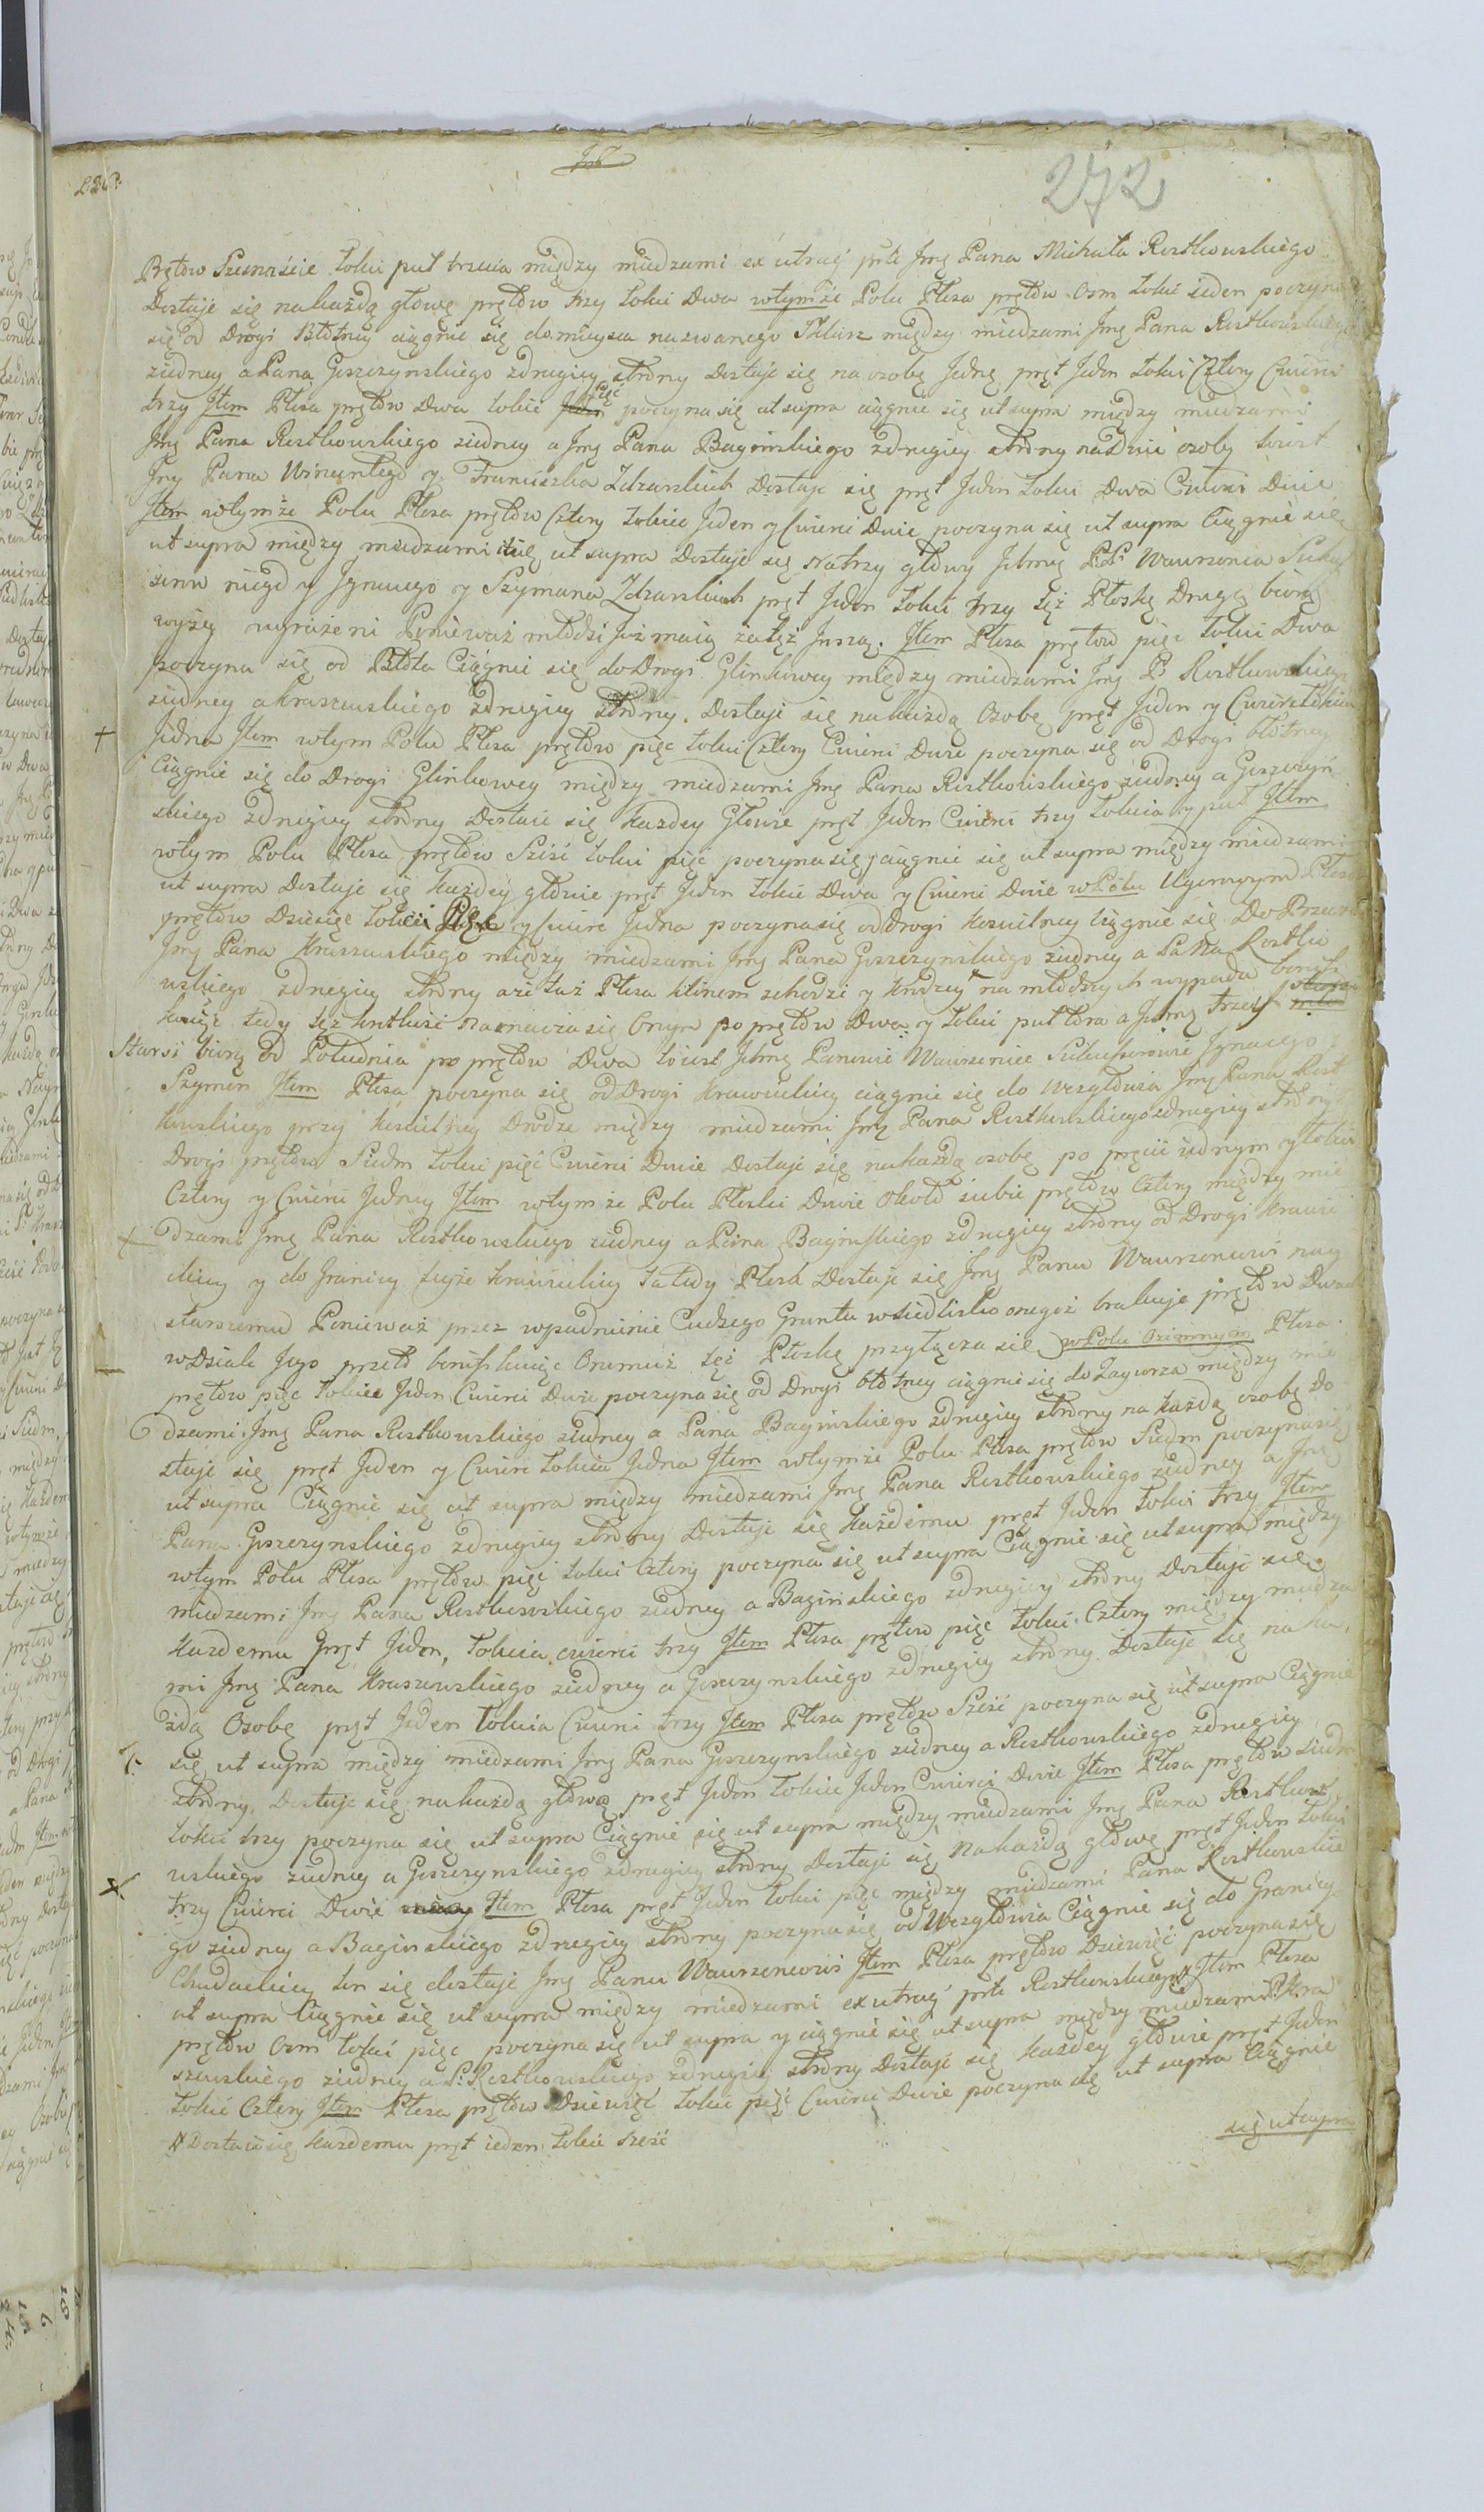 272
Prętów Szesnaście Łokci puł trzecia między miedzami ex utraq prte Jmę Pana Michała Rostkowskiego
Dostaje się na każdą głowę prętów trzy Łokci Dwa wtymże Polu Płosa prętów Osm Łokć ieden poczyna
się od Drogi Błotney ciągnie się do mieysca nazwanego między miedzami Jmę Pana Rostkowskiego
ziedney a Pana Goszczynskiego zdrugiey strony Dostaje się na osobę Jednę pręt Jeden Łokci Cztery Cwierci
trzy Jtem Płosa prętów Dwa Łokcie pięć poczyna się ut supra ciągnie się ut supra między miedzami
Jmę Pana Rostkowskiego ziedney a Jmę Pana Baginskiego zdrugiey strony na Dwie osoby to iest
Jmę Pana Wincentego y Franciszka Zdzarskich Dostaje się pręt Jeden Łokci Dwa Cwierci Dwie
Jtem wtymże Polu Płosa prętów Cztery Łokieć Jeden y Cwierci Dwie poczyna się ut supra Ciągnie się
ut supra między miedzami ut supra Dostaje się na trzy głowy Jchmę P.P. Wawrzenca
y Jgnacego y Szymana Zdzarskich pręt Jeden Łokci trzy tęż Płoskę Drugą biorą
wyżey wyrażeni Ponieważ młodsi Już maią zatęż Jnszą. Jtem Płosa prętów pięć Łokci Dwa
poczyna się od Błota Ciągnie się do Drogi Glinkowey między miedzami Jmę P. Rostkowskiego
ziedney a Kraszewskiego zdrugiey strony. Dostaje się na każdą Osobę pręt Jeden y Cwierć Łokcia
Jedna Jtem wtym Polu Płosa prętów pięć Łokci Cztery Cwierci Dwie poczyna się od Drogi błotney
Ciągnie się do Drogi Glinkowey między miedzami Jmę Pana Rostkowskiego ziedney a Goszczyn
skiego zdrugiey strony Dostaie się Każdey Głowie pręt Jeden Cwierci trzy Łokcia y puł Jtem
wtym Polu Płosa prętów Sześć Łokci pięć poczyna się y ciągnie się ut supra między miedzami
ut supra Dostaje się Każdey głowie pręt Jeden Łokcie Dwa y Cwierci Dwie wPolu Ugorowym Płosa
prętów Dziewięć Łokci Pięć y Cwierć Jedna poczyna się od Drogi Koscielney ciągnie się Do
Jmę Pana Kraszewskiego między miedzami Jmę Pana Goszczynskiego ziedney a Pana Rostko
wskiego zdrugiey strony aże taż Płosa klinem schodzi y krodzey na młodszych wypada
tedy tęż naznacza się Onym po prętów Dwa y Łokci puł tora a Jnną trzey
Starsi biorą od Południa po prętów Dwa to iest Jchmę Panowie Wawrzeniec Jgnacego
Szymon Jtem Płosa poczyna się od Drogi ciągnie się do Wezgłowia Jmę Pana Rost
kowskiego przy Koscielney Drodze między miedzami Jmę Pana Rostkowskiego zdrugiey strony
Drogi prętów Siedm Łokci pięć Cwierci Dwie Dostaje się na każdą osobę po pręcie iednym y Łokci
Cztery y Cwierci Jedney Jtem wtymże Polu Płoski Dwie Około siebie prętów Cztery między mie
dzami Jmę Pana Rostkowskiego ziedney a Pana Baginskiego zdrugiey strony od Drogi
y do Granicy teyże Płosk Dostaje się Jmę Panu Wawrzencowi nay
starszemu Ponieważ przez wpadnienie Cudzego Gruntu wsiedlisko onegoż brakuje prętów Dwa
wDziale Jego przeto Onemuż tęż Płoskę przyłącza się w Polu Ozimnym Płosa
prętów pięć Łokcie Jeden Cwierci Dwie poczyna się od Drogi błotney ciągnie się do Zagorza między mie
dzami Jmę Pana Rostkowskiego ziedney a Pana Baginskiego zdrugiey strony na każdą osobę Do
staje się pręt Jeden y Cwierć Łokcia Jedna Jtem wtymże Polu Płosa prętów Siedm poczyna się
ut supra Ciągnie się ut supra między miedzami Jmę Pana Rostkowskiego ziedney a Jmę
Pana Goszczynskiego zdrugiey strony Dostaje się Każdemu pręt Jeden Łokci trzy Jtem
wtym Polu Płosa prętów pięć Łokci Cztery poczyna się ut supra Ciągnie się ut supra między
miedzami Jmę Pana Rostkowskiego ziedney a Baginskiego zdrugiey strony Dostaje się
Każdemu Pręt Jeden, Łokcia cwierci trzy Jtem Płosa prętów pięć Łokci Cztery między miedza
mi Jmę Pana Kraszewskiego ziedney a Goszczynskiego zdrugiey strony Dostaje się na ka
żdą Osobę pręt Jeden Łokcia Cwierci trzy Jtem Płosa prętów Sześć poczyna się ut supra Ciągnie
się ut supra między miedzami Jmę Pana Goszczynskiego ziedney a Rostkowskiego zdrugiey
strony. Dostaje się na każdą głowę pręt Jeden Łokcie Jeden Cwierci Dwie Jtem Płosa prętów Siedm
Łokci trzy poczyna się ut supra Ciągnie się ut supra między miedzami Jmę Pana Rostko
wskiego ziedney a Goszczynskiego zdrugiey strony Dostaje się Na każdą głowę pręt Jeden Łokci
trzy Cwierci Dwie Jtem Płosa pręt Jeden Łokci pięć między miedzami Pana Rostkowskie
go ziedney a Baginskiego zdrugiey strony poczyna się od Wezgłowia Ciągnie się do Granicy
ten się dostaje Jmę Panu Wawrzencowi Jtem Płosa prętów Dziewięć poczyna się
ut supra Ciągnie się ut supra między miedzami ex utraq prte Rostkowskiego # Jtem Płosa
prętów Osm Łokci pięć poczyna się ut supra y ciągnie się ut supra między miedzami P. Kra
szewskiego ziedney a P. Rostkowskiego zdrugiey strony Dostaje się Każdey głowie pręt Jeden
Łokci Cztery Jtem Płosa prętów Dziewięć Łokci pięć Cwierci Dwie poczyna się ut supra Ciągnie
się ut supra
# Dostaie się Każdemu pręt ieden Łokci sześć